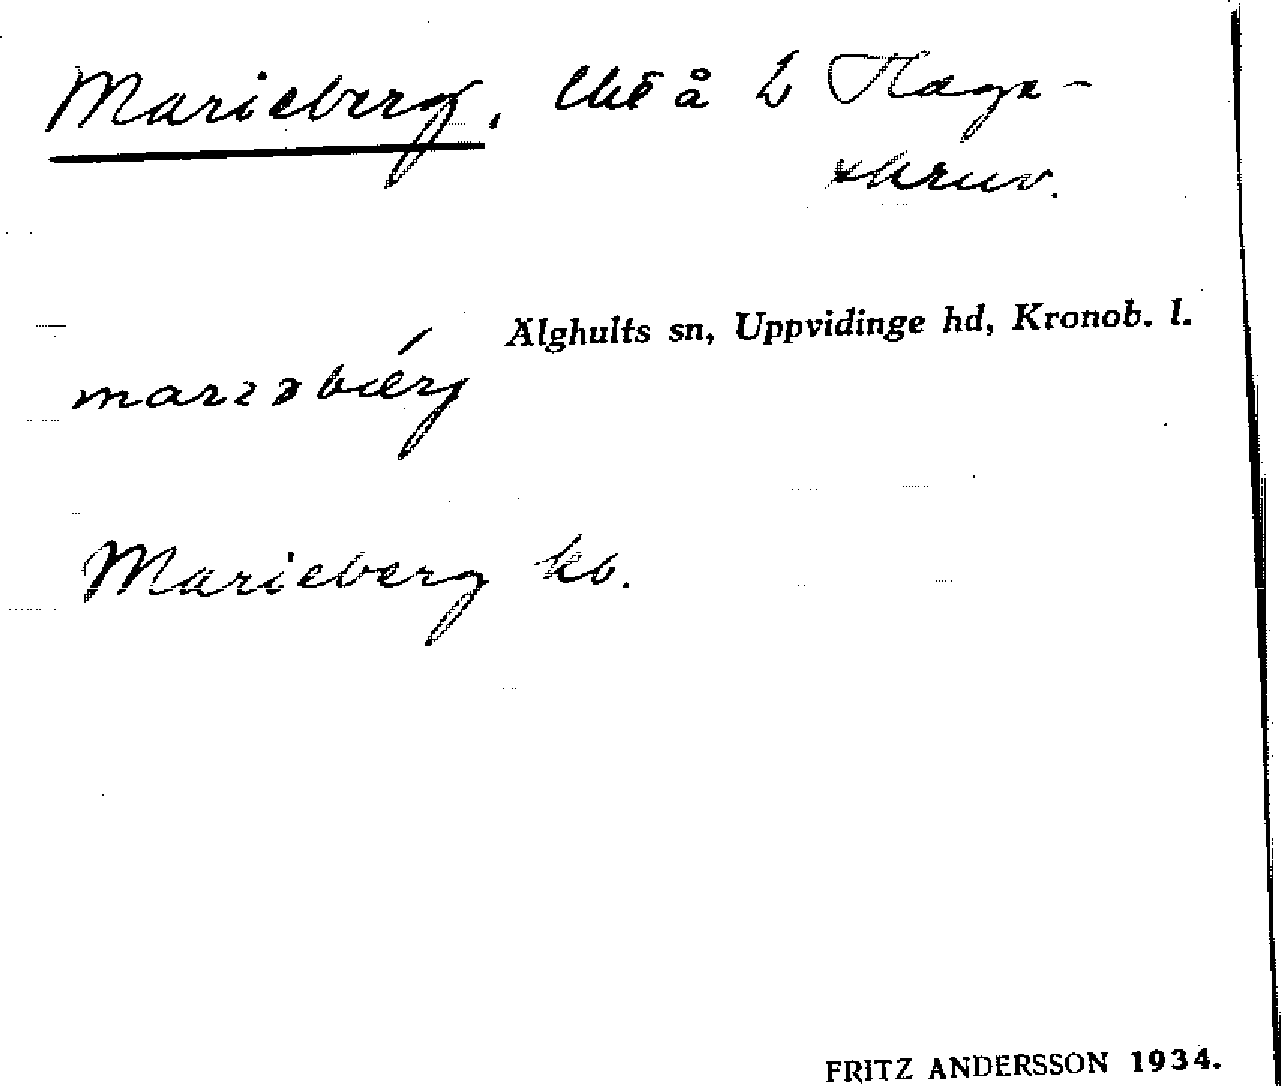 Marieberg, lht å L Haga-
skruv.
Älghults sn, Uppvidinge hd, Kronob. l.
marɪəbærg
Marieberg kb.
FRITZ ANDERSSON 1934.